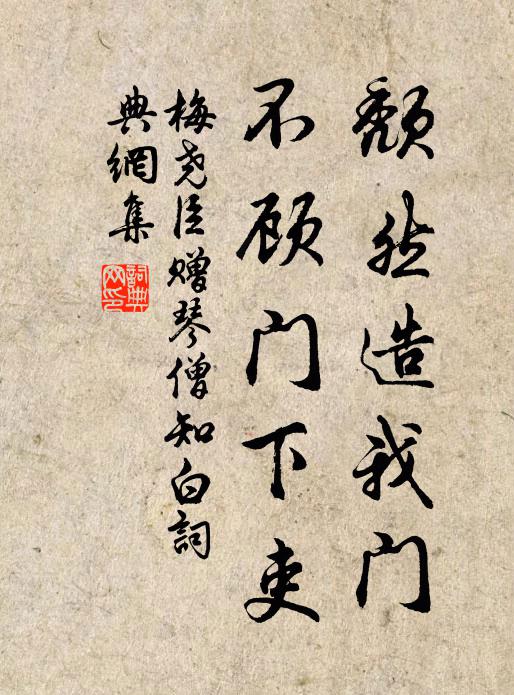 颓然造我门
不顾门下吏
梅尧臣赠琴僧知白詞
典網集
詞典網印